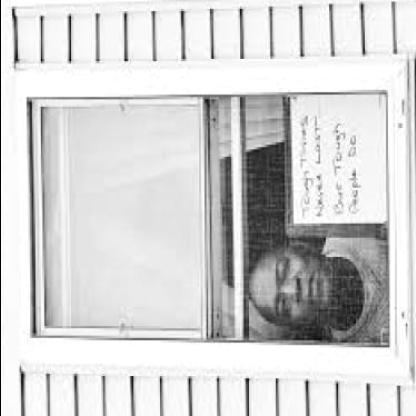 Tough Times
Never Last
But Tough
People Do